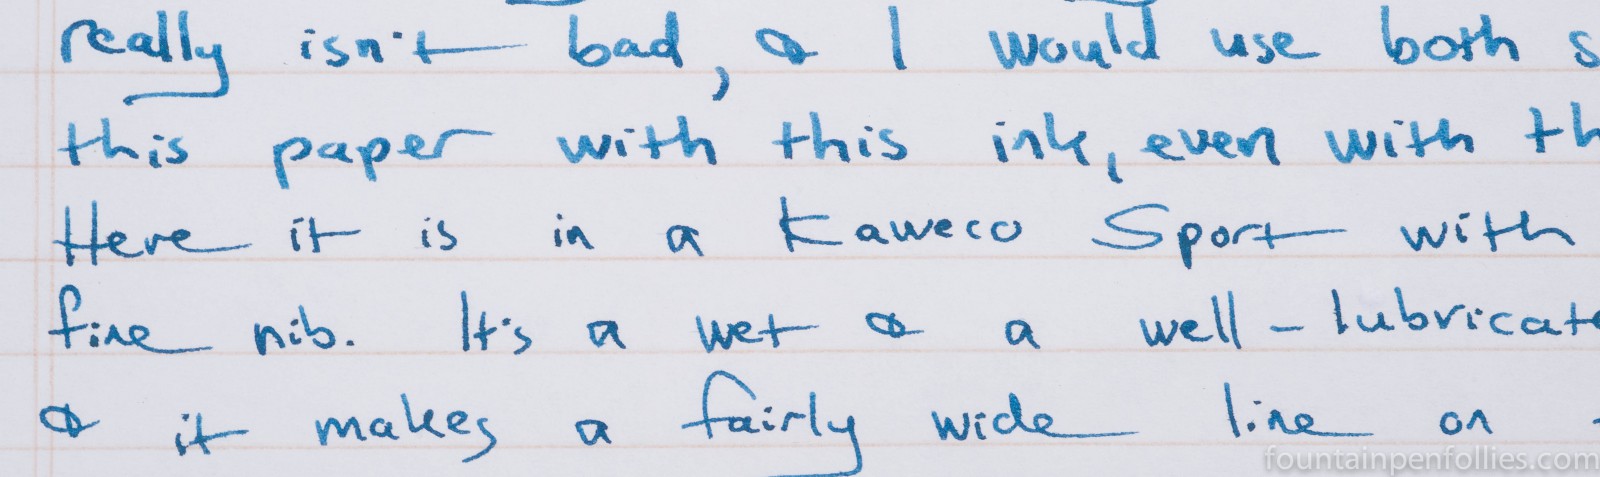 really isn't bad, & I would use both s
this paper with this ink, even with th
Here it is in a Kaweco Sport with
fine nib. It's a wet & a well-lubricate
& it makes a fairly wide line on
fountainpenfollies.com